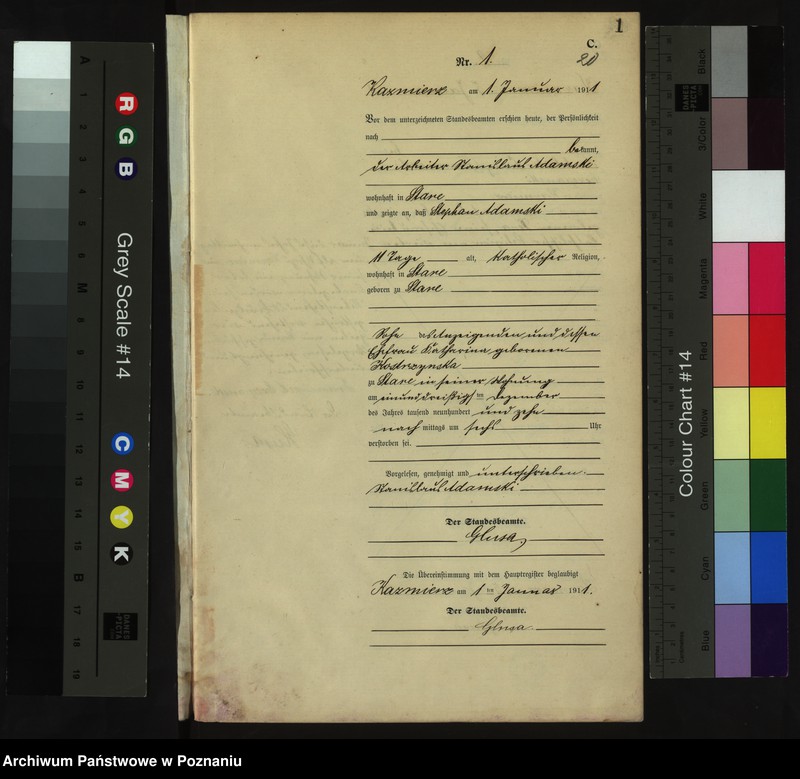 1
C.
Nr. 1.
20
Kazmierz am 1. Januar 1911
Vor dem unterzeichneten Standesbeamten erschien heute, der Persönlichkeit
nach
bekannt,
der Arbeiter Stanislaus Adamski
wohnhaft in Stare
und zeigte an, daß Stephan Adamski
11 Tage alt, katholischer Religion,
wohnhaft in Stare
geboren zu Stare
Sohn des Anzeigenden und dessen
Ehefrau Katharina geborenen
Kostrzynska
zu Stare in seiner Wohnung
am einunddreißigsten Dezember
des Jahres tausend neunhundert und zehn
nach mittags um sechs Uhr
verstorben sei.
Vorgelesen, genehmigt und unterschrieben.
Stanislaus Adamski
Der Standesbeamte.
Glusa
Die Übereinstimmung mit dem Hauptregister beglaubigt
Kazmierz am 1ten Januar 1911.
Der Standesbeamte.
Glusa
A 1 2 3 4 5 6 M 8 9 10 11 12 13 14 15 B 17 18 19
R
G
B
Grey Scale #14
C
M
Y
K
DANES
-PICTA
.COM
Colour Chart #14
DANES
-PICTA
.COM
Black
3/Color
White
Magenta
Red
Yellow
Green
Cyan
Blue
Archiwum Państwowe w Poznaniu